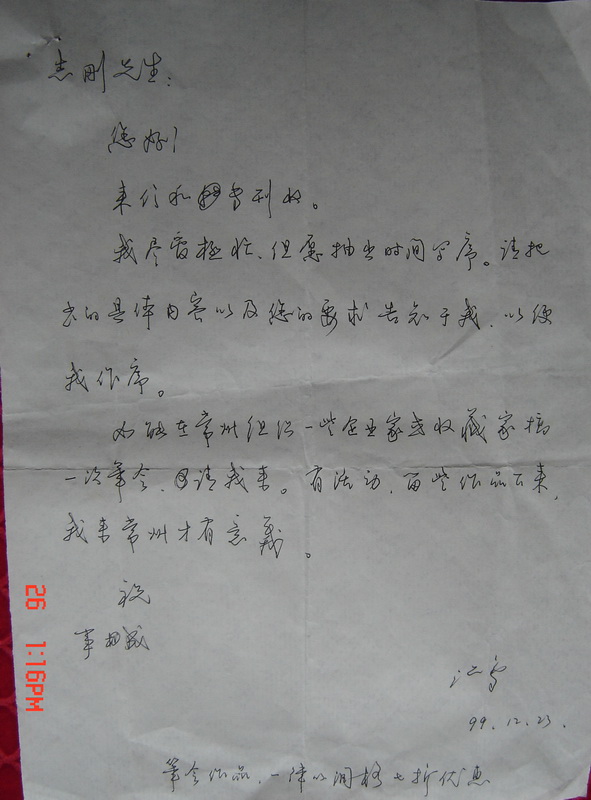 志刚先生:
您好!
来信和专刊收。
我尽管极忙,但愿抽出时间写序。请把
书的具体内容以及您的要求告知于我,以便
我作序。
如能在常州组织一些企业家或收藏家搞
一次笔会,请我来。有活动,留些作品下来,
我来常州才有意义。
祝
事业成
99.12.23.
笔会作品,一律以润格七折优惠
26 1:16PM